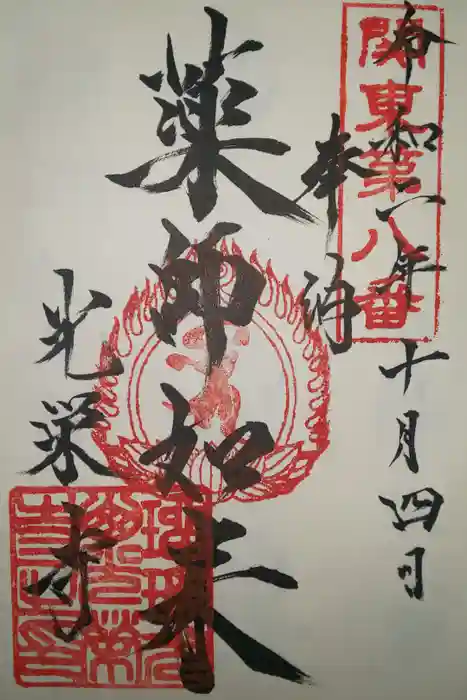 関東第八番
令和二年十月四日
奉拝
薬師如来
光栄寺